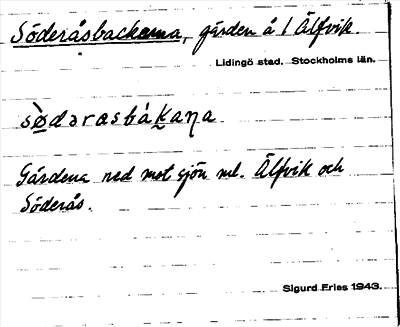 Söderåsbackarna, gården å l Älfvik.
Lidingö stad. Stockholms län.
sø̀dərasbákaŋa.
Gärdena ned mot sjön ml. Älfvik och
Söderås.
Sigurd Fries 1943.